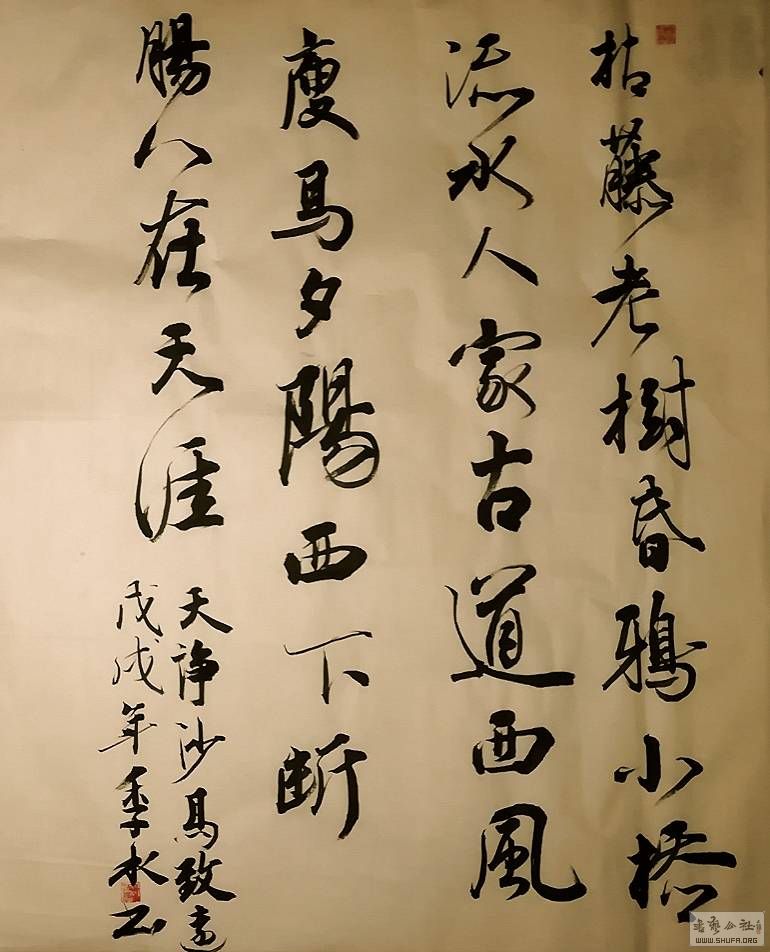 枯藤老樹昏鴉小橋
流水人家古道西風
瘦馬夕陽西下斷
腸人在天涯
天諍沙馬致遠
戊戌年季水书
书艺公社
WWW.SHUFA.ORG